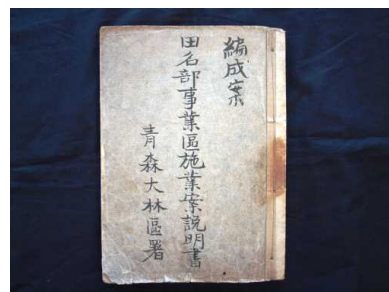 編成案
田名部事業區施業案説明書
青森大林區署